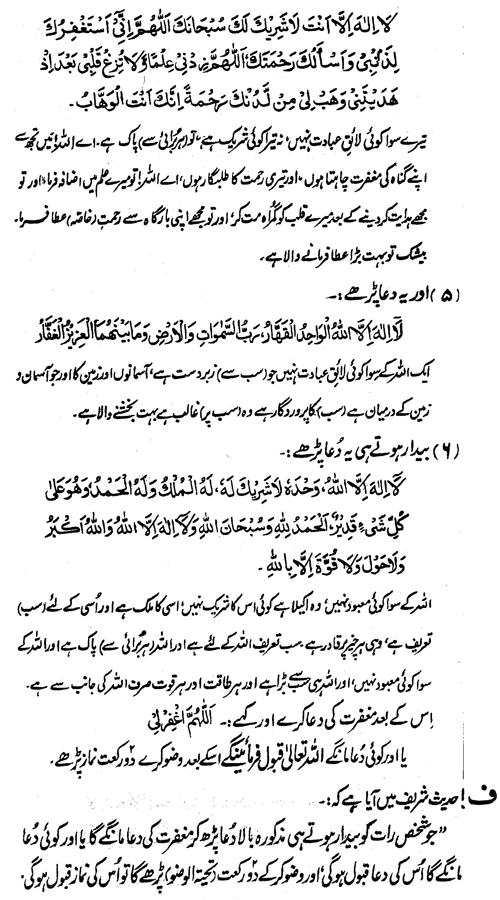 لَا اِلٰهَ اِلَّا اَنْتَ لَا شَرِيْكَ لَكَ سُبْحَانَكَ اَللّٰهُمَّ اِنِّيْ اَسْتَغْفِرُكَ
لِذَنْبِيْ وَاَسْاَلُكَ رَحْمَتَكَ، اَللّٰهُمَّ زِدْنِيْ عِلْمًا وَّلَا تُزِغْ قَلْبِيْ بَعْدَ اِذْ
هَدَيْتَنِيْ وَهَبْ لِيْ مِنْ لَّدُنْكَ رَحْمَةً اِنَّكَ اَنْتَ الْوَهَّابُ۔
تیرے سوا کوئی لائقِ عبادت نہیں، نہ تیرا کوئی شریک ہے، تو (ہر برائی سے) پاک ہے، اے اللہ! میں تجھ سے
اپنے گناہ کی مغفرت چاہتا ہوں، اور تیری رحمت کا طلبگار ہوں، اے اللہ! تو میرے علم میں اضافہ فرما، اور تو
مجھے ہدایت کر دینے کے بعد میرے قلب کو گمراہ مت کر، اور تو مجھے اپنی بارگاہ سے رحمتِ (خاصہ) عطا فرما۔
بیشک تو بہت بڑا عطا فرمانے والا ہے۔
(۵) اور یہ دعا پڑھے:۔
لَا اِلٰهَ اِلَّا اللهُ الْوَاحِدُ الْقَهَّارُ، رَبُّ السَّمٰوَاتِ وَالْاَرْضِ وَمَا بَيْنَهُمَا الْعَزِيْزُ الْغَفَّارُ
ایک اللہ کے سوا کوئی لائقِ عبادت نہیں جو (سب سے) زبردست ہے، آسمانوں اور زمین کا اور جو آسمان و
زمین کے درمیان ہے (سب) کا پروردگار ہے وہ (سب پر) غالب ہے بہت بخشنے والا ہے۔
(۶) بیدار ہوتے ہی یہ دُعا پڑھے:۔
لَا اِلٰهَ اِلَّا اللهُ، وَحْدَهٗ لَا شَرِيْكَ لَهٗ، لَهُ الْمُلْكُ وَلَهُ الْحَمْدُ وَهُوَ عَلٰى
كُلِّ شَيْءٍ قَدِيْرٌ، اَلْحَمْدُ لِلّٰهِ وَسُبْحَانَ اللهِ وَلَا اِلٰهَ اِلَّا اللهُ وَاللهُ اَكْبَرُ
وَلَا حَوْلَ وَلَا قُوَّةَ اِلَّا بِاللهِ۔
اللہ کے سوا کوئی معبود نہیں، وہ اکیلا ہے کوئی اس کا شریک نہیں، اسی کا ملک ہے اور اُسی کے لئے (سب)
تعریف ہے، وہی ہر چیز پر قادر ہے، سب تعریف اللہ کے لئے ہے اور اللہ (ہر برائی سے) پاک ہے اور اللہ کے
سوا کوئی معبود نہیں، اور اللہ ہی سب سے بڑا ہے اور ہر طاقت اور ہر قوت صرف اللہ کی جانب سے ہے۔
اس کے بعد مغفرت کی دعا کرے اور کہے:۔ اَللّٰهُمَّ اغْفِرْ لِيْ
یا اور کوئی دعا مانگے اللہ تعالیٰ قبول فرمائیں گے اسکے بعد وضو کرے ۲ دو رکعت نماز پڑھے۔
ف! حدیث شریف میں آیا ہے کہ:۔
"جو شخص رات کو بیدار ہوتے ہی مذکورہ بالا دُعا پڑھ کر مغفرت کی دعا مانگے گا یا اور کوئی دُعا
مانگے گا اُس کی دعا قبول ہوگی، اور وضو کر کے ۲ دو رکعت (تحیۃ الوضو) پڑھے گا تو اُس کی نماز قبول ہوگی۔